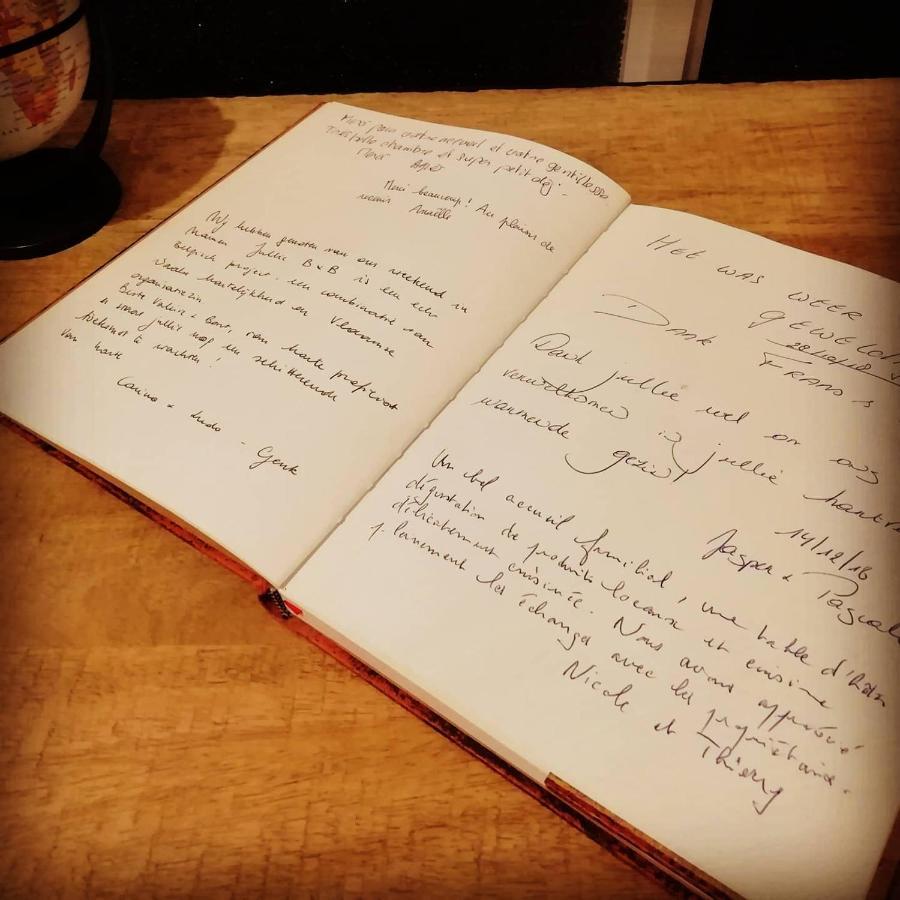 Merci pour votre accueil et votre gentillesse
Très belle chambre et super petit dej.
Merci
Merci beaucoup! Au plaisir de
revenir Anaëlle
Wij hebben genoten van ons weekend in
Namen. Jullie B&B is een echt
Belgisch project. een combinatie van
Waalse hartelijkheid en Vlaamse
organisatiezin
Beste Valérie & Bart, van harte proficiat
& moge jullie nog een schitterende
toekomst te wachten!
Van harte
Carina & Ludo - Genk
HET WAS WEER
GEWELDI
28/10/18
DANK FRANS &
Dank jullie wel om ons
verwelkomen in jullie
warmede gezin!
14/12/18
Jasper & Pascale
Un bel accueil familial, une table d'hôtes
dégustation de produits locaux et cuisine
délicatement cuisinée. Nous avons apprécié
pleinement les échanges avec les propriétaires.
Nicole et Thierry